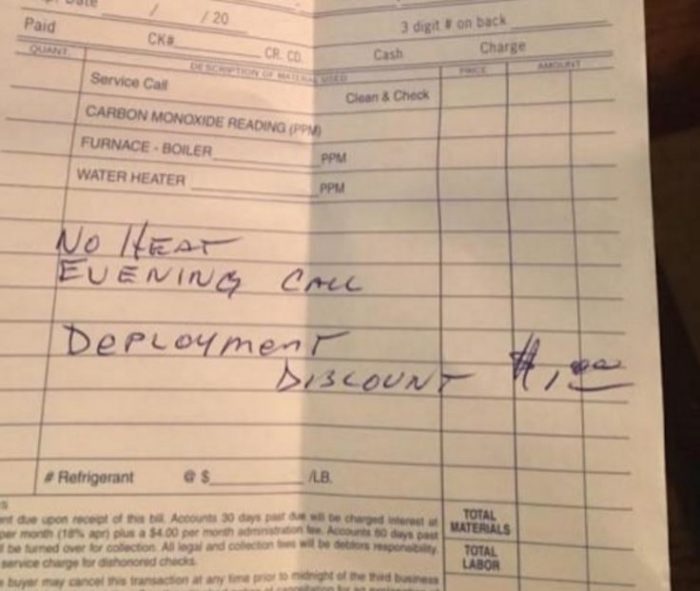 Date / / 20
3 digit # on back
Paid CK# CR. CD. Cash Charge
QUANT. DESCRIPTION OF MATERIAL USED PRICE AMOUNT
Service Call Clean & Check
CARBON MONOXIDE READING (PPM)
FURNACE - BOILER PPM
WATER HEATER PPM
NO HEAT
EVENING CALL
DEPLOYMENT
DISCOUNT $1,00
# Refrigerant @ $ /LB.
due upon receipt of this bill. Accounts 30 days past due will be charged interest at
per month (18% apr) plus a $4.00 per month administration fee. Accounts 60 days past
be turned over for collection. All legal and collection fees will be debtors responsibility.
service charge for dishonored checks.
buyer may cancel this transaction at any time prior to midnight of the third business
TOTAL MATERIALS
TOTAL LABOR